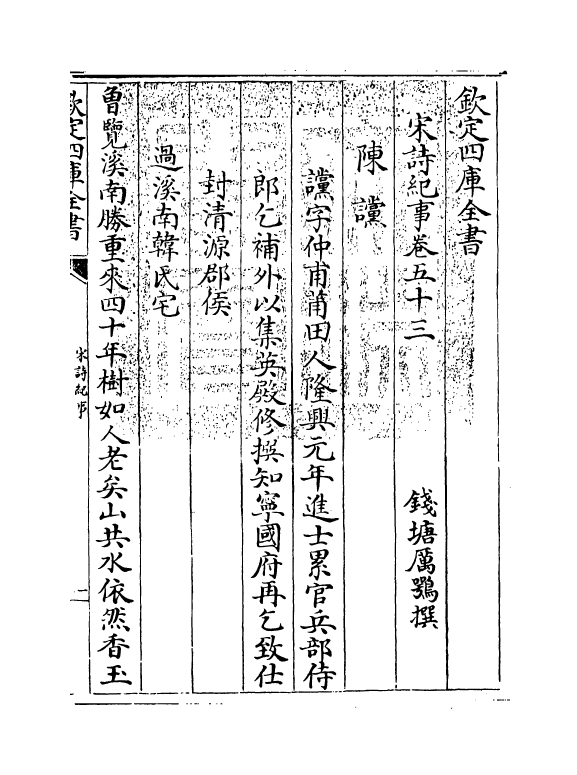 欽定四庫全書
宋詩紀事卷五十三
錢塘厲鶚撰
陳讜
讜字仲甫莆田人隆興元年進士累官兵部侍
郎乞補外以集英殿修撰知寧國府再乞致仕
封清源郡侯
過溪南韓氏宅
曾覽溪南勝重來四十年樹如人老矣山共水依然香玉
欽定四庫全書
宋詩紀事
二